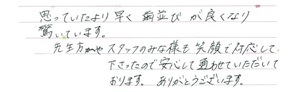 思っていたより早く歯並びが良くなり
驚いています。
先生方やスタッフのみな様も笑顔で対応して
下さったので安心して通わせていただいて
おります。ありがとうございます。